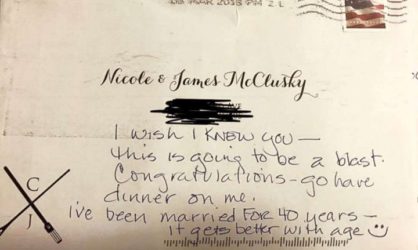 Nicole & James McClusky
I wish I knew you—
this is going to be a blast.
Congratulations-go have
dinner on me.
i've been married FOR 40 years—
it gets better with age
C
J